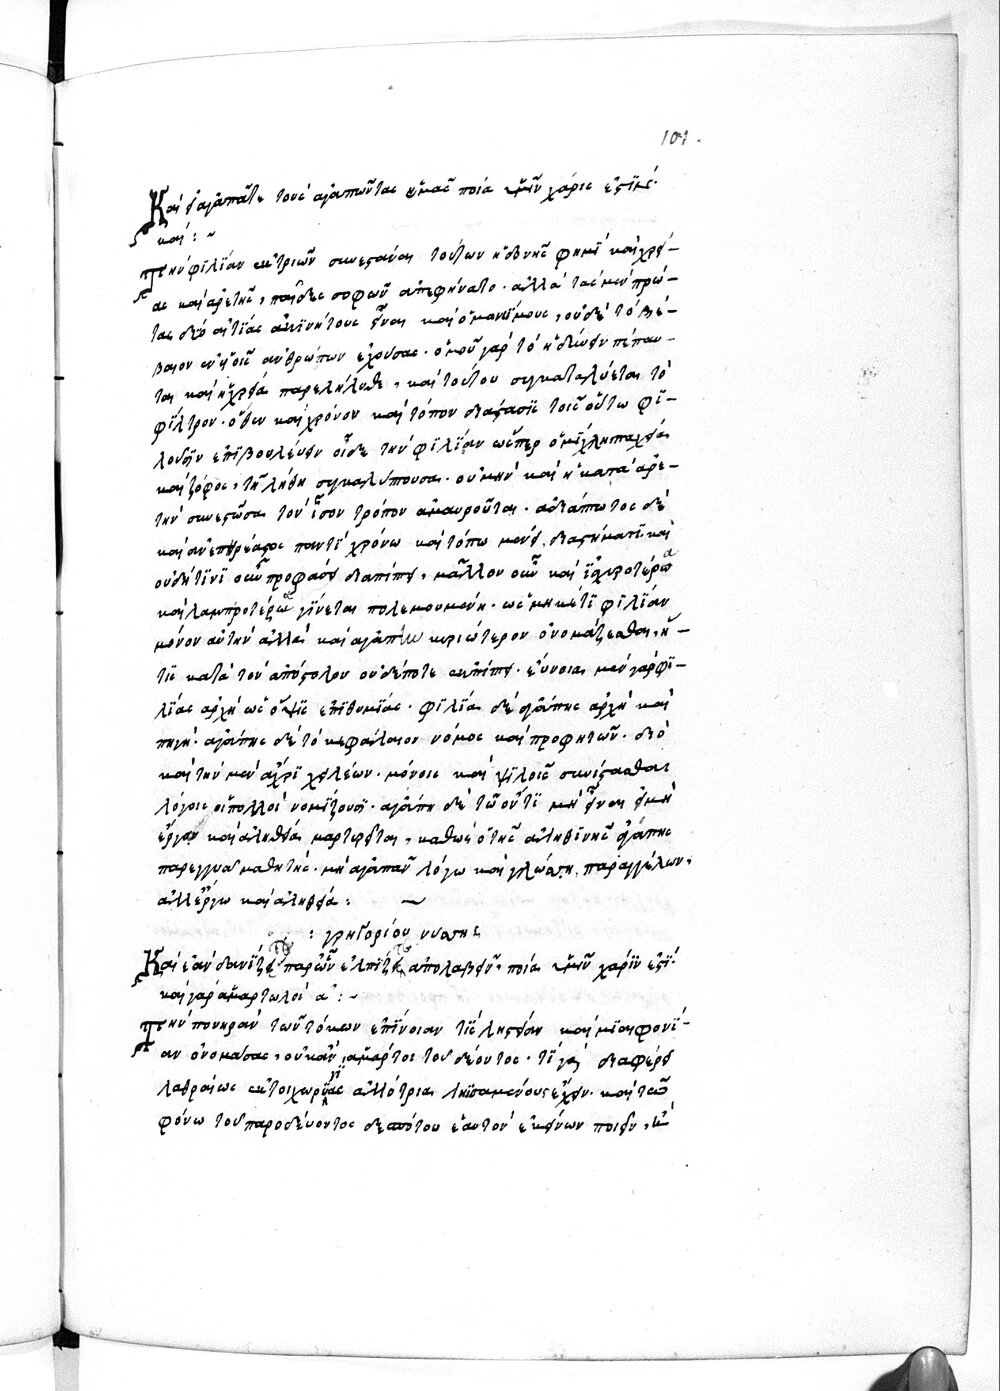 101.
Καὶ εἰ ἀγαπᾶτε τοὺς ἀγαπῶντας ὑμᾶς ποία ὑμῖν χάρις ἐστὶ κέ·
καὶ : ~
Τὴν φιλίαν ἐκ τριῶν συνεστάναι τούτων ἡδονῆς φημὶ καὶ χρεί–
ας καὶ ἀρετῆς, παῖδες σοφῶν ἀπεφήναντο· ἀλλὰ τὰς μὲν πρώ–
τας δύο αἰτίας εἶναι καὶ οὐδὲ τὸ βέ–
βαιον ἀνθρώπων ἐχούσας· ὁμοῦ γὰρ τὸ ἡδεῖν πέπαυ–
ται καὶ ἡ χρεία παρελήλυθε, καὶ τούτου συγκαταλύεται τὸ
φίλτρον· ὅθεν καὶ χρόνον καὶ τόπον διαστάσει τοῖς οὕτω φι–
λοῦσιν ἐπιβουλεύειν οἶδε τὴν φιλίαν ὥσπερ ὁμίχλη παχεῖα
καὶ ζόφος, τῇ λήθῃ συγκαλύπτουσα· οὐ μὴν καὶ ἡ κατὰ ἀρε–
τὴν συνεστῶσα τὸν ἴσον τρόπον ἀμαυροῦται· ἀδιάπτωτος δὲ
καὶ ἀνεπηρέαστος παντὶ χρόνῳ καὶ τόπῳ μένει, διαστήματι καὶ
οὐδέ τινι οὖν προφάσει διαπίπτει, μᾶλλον οὖν καὶ ἰσχυροτέρα
καὶ λαμπροτέρα γίνεται πολεμουμένη· ὡς μηκέτι φιλίαν
μόνον αὐτὴν ἀλλὰ καὶ ἀγάπην κυριώτερον ὀνομάζεσθαι, ἥ–
τις κατὰ τὸν ἀπόστολον οὐδέποτε ἐκπίπτει· εὔνοια μὲν γὰρ φι–
λίας ἀρχὴ ὡς ὄψις ἐπιθυμίας· φιλία δὲ ἀγάπης ἀρχὴ καὶ
πηγή· ἀγάπης δὲ τὸ κεφάλαιον νόμος καὶ προφητῶν· διὸ
καὶ τὴν μὲν ἄχρι χειλέων· μόνοις καὶ ψιλοῖς συνίστασθαι
λόγοις οἱ πολλοὶ νομίζουσι· ἀγάπη δὲ τῷ ὄντι μὴ εἶναι εἰ μὴ
ἔργον καὶ ἀλήθεια μαρτυρεῖται, καθὼς ὁ τῆς ἀληθινῆς ἀγάπης
παρεγγυᾷ μαθητής· μὴ ἀγαπᾶν λόγῳ καὶ γλώσσῃ, παραγγέλων,
ἀλλ' ἔργῳ καὶ ἀληθείᾳ : ~
: γρηγορίου νύσσης
Καὶ ἐὰν δανείζητε παρ' ὧν ἐλπίζετε ἀπολαβεῖν, ποία ὑμῖν χάρις ἐστί·
καὶ γὰρ ἁμαρτωλοὶ : ~
Τὴν πονηρὰν τῶν τόκων ἐπίνοιαν τίς λῃστείαν καὶ μιαιφονί–
αν ὀνομάσας, οὐκ ἂν ἁμάρτοι τοῦ δέοντος· τί γὰρ διαφέρει
λαθραίως ἐκ τοιχωρυγίας ἀλλότρια λῃϊσαμένους ἔχειν· καὶ τῷ
φόνῳ τοῦ παροδεύοντος δεσπότου ἑαυτὸν ἐκείνων ποιεῖν, ἢ